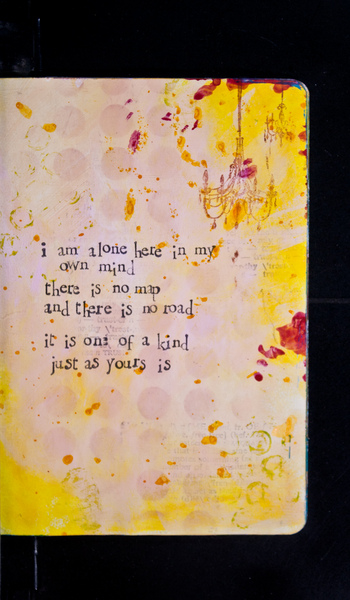 i am alone here in my
own mind
there is no map
and there is no road
it is one of a kind
just as yours is